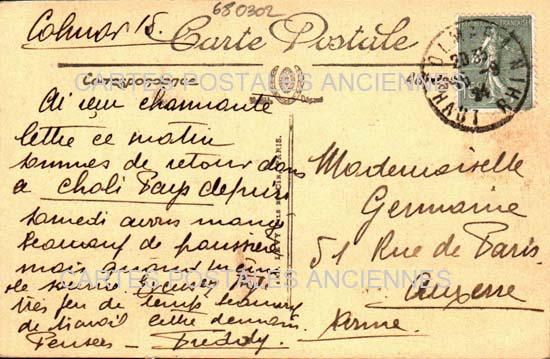 680302
Colmar 15.
Carte Postale
Correspondance
CARTES POSTALES ANCIENNES
Ai reçu charmante
lettre ce matin
sommes de retour dans
a choli Pays depuis
samedi avons mangé
beaucoup de poussière
mais quand même
très peu de temps beaucoup
de travail lettre demain.
Pensées - Freddy.
Mademoiselle
Germaine
51 Rue de Paris
Auxerre
Yonne.
CARTES POSTALES ANCIENNES
COLMAR
HAUT RHIN